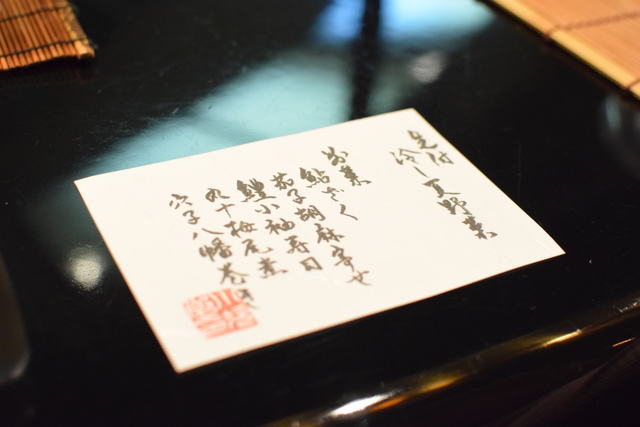 先付
冷し夏野菜
前菜
鮎ざく
茄子胡麻幸せ
鱧小袖寿司
丸十梅尾煮
穴子八幡巻